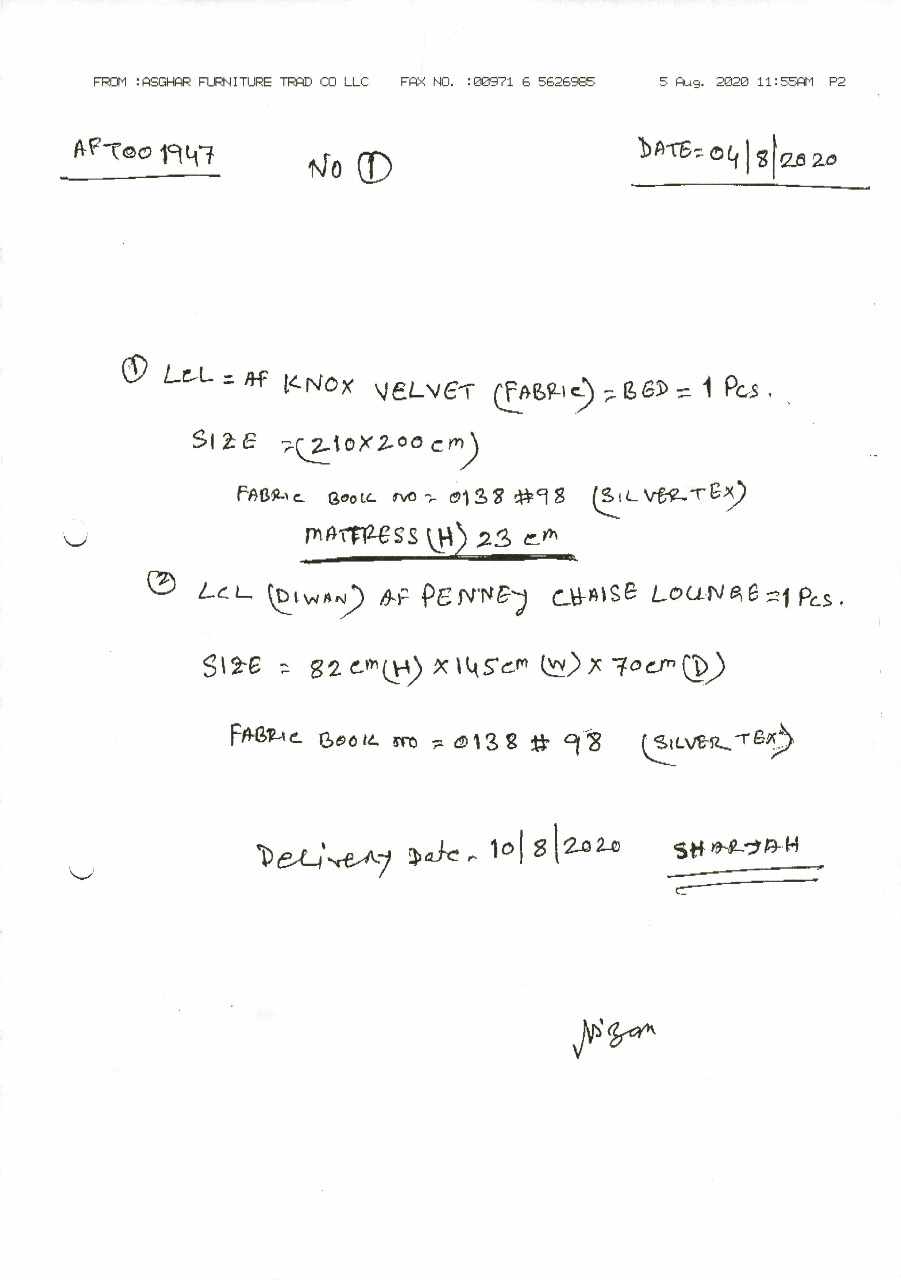 FROM :ASGHAR FURNITURE TRAD CO LLC FAX NO. :00971 6 5626985 5 Aug. 2020 11:55AM P2
AFT001947 NO ① DATE=04/8/2020
① LCL = AF KNOX VELVET (FABRIC) = BED = 1 Pcs.
SIZE =(210X200cm)
FABRIC BOOK NO = 0138 #98 (SILVERTEX)
MATTRESS (H) 23 cm
② LCL (DIWAN) AF PENNEY CHAISE LOUNGE =1 Pcs.
SIZE = 82 cm(H) X 145cm (W) X 70cm (D)
FABRIC BOOK NO = 0138 # 98 (SILVER TEX)
Delivery Date- 10/8/2020 SHARJAH
Nizam